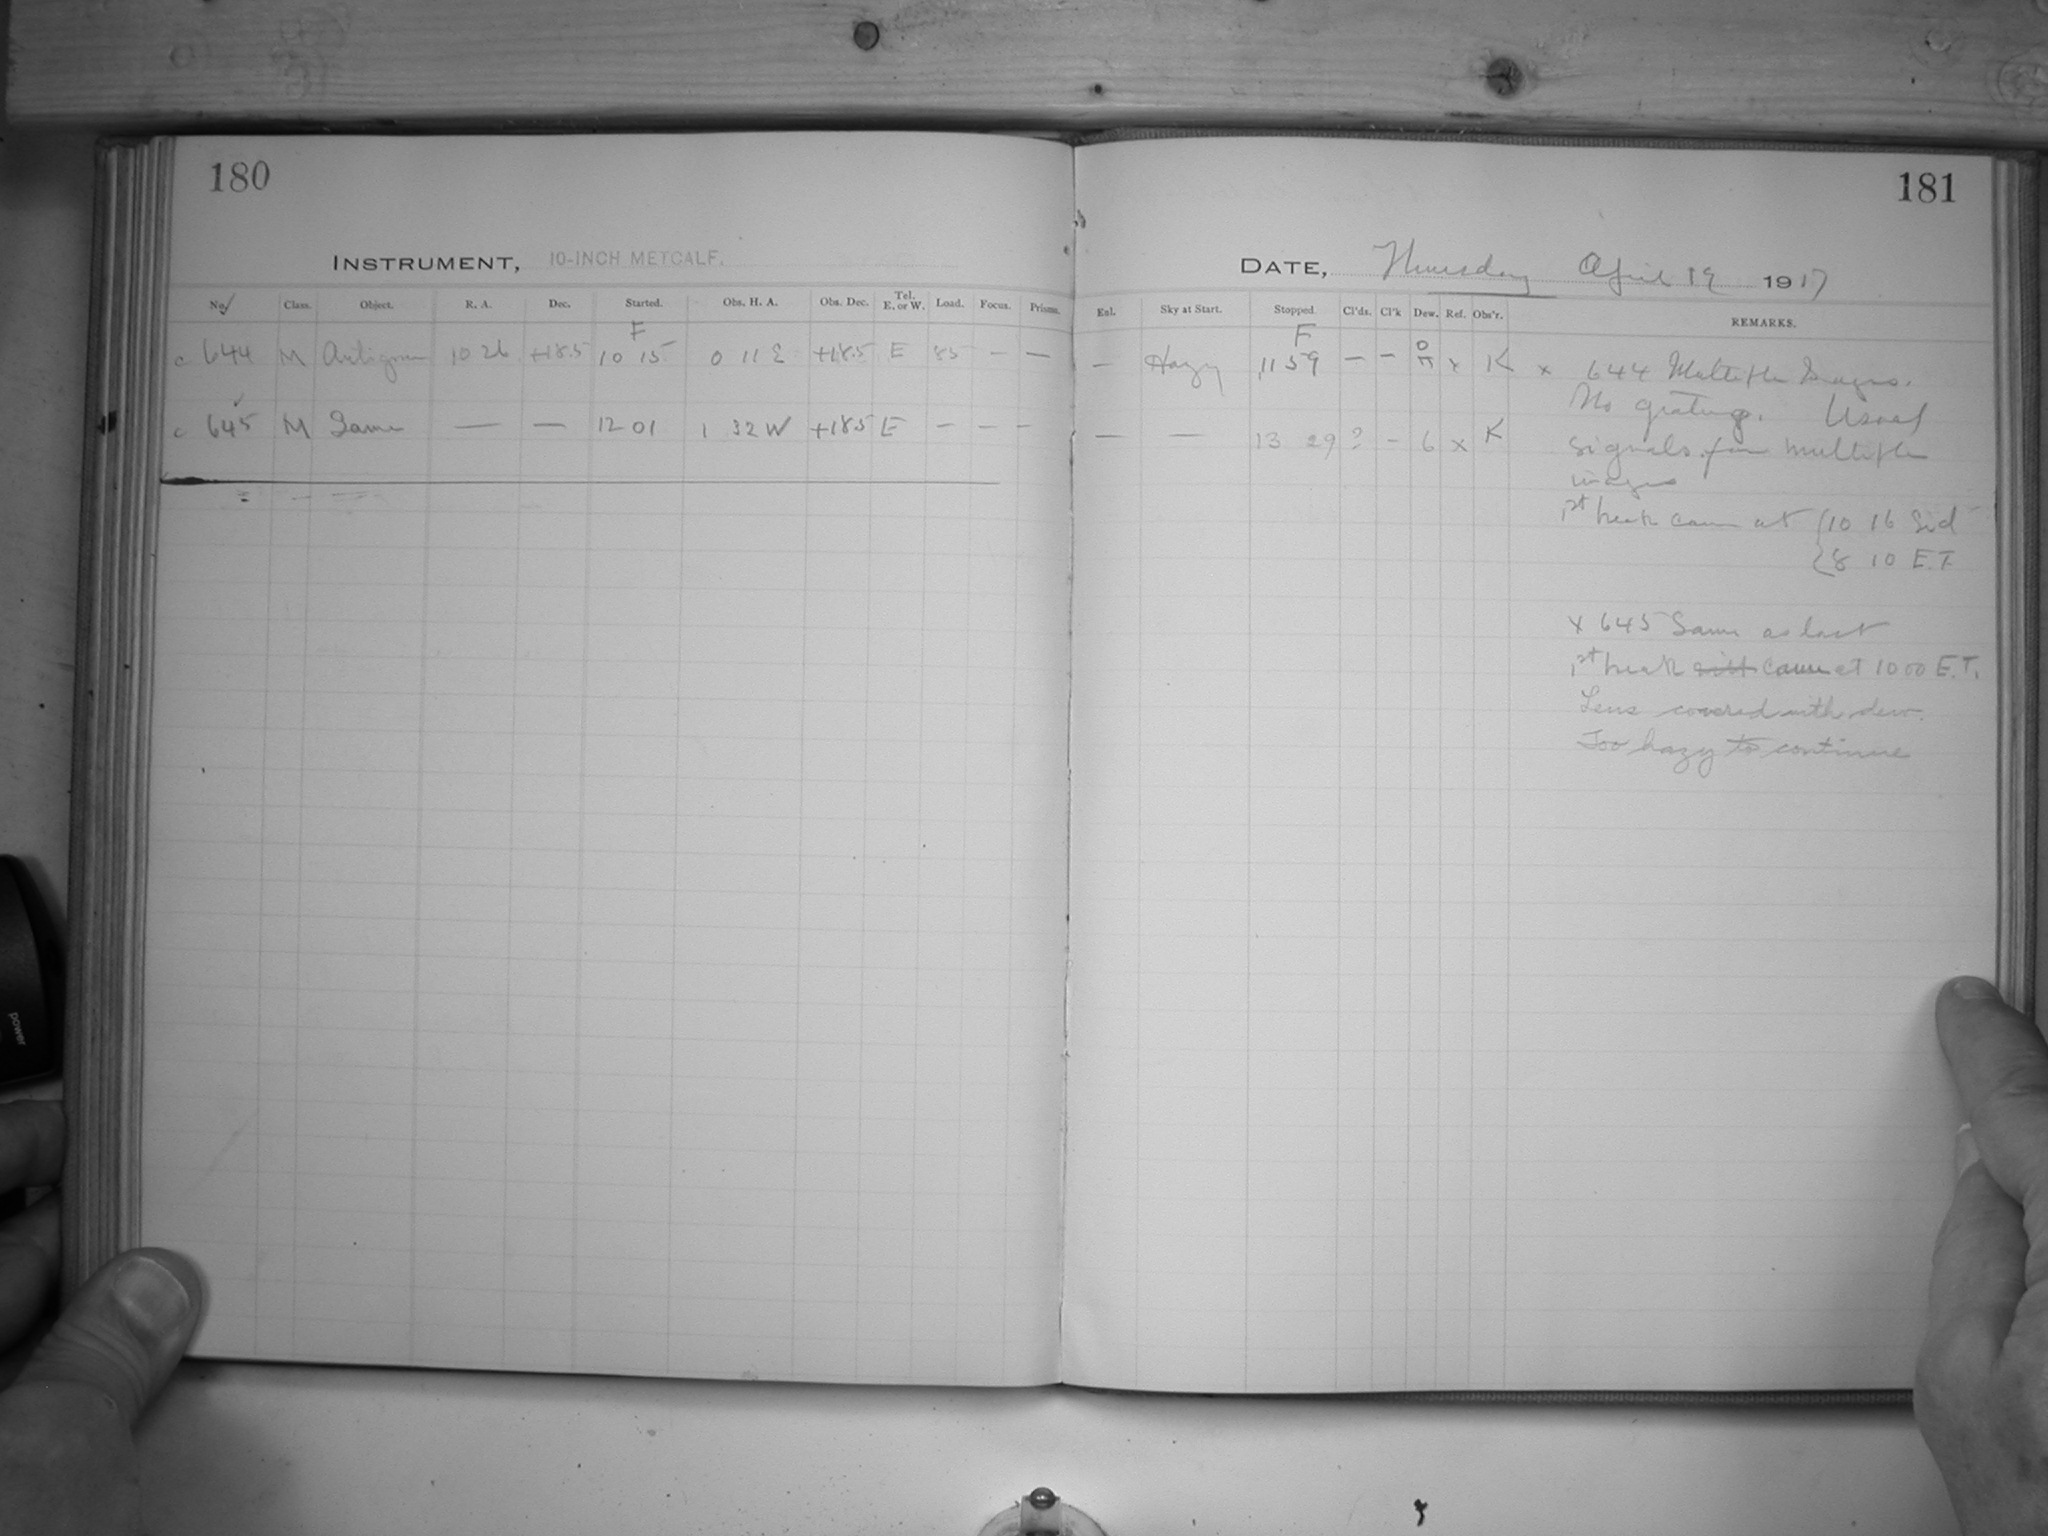 180
INSTRUMENT, 10-INCH METCALF.
No. Class. Object. R. A. Dec. Started. Obs. H. A. Obs. Dec. Tel. E. or W. Load. Focus. Prisms.
F
c 644 M Antigone 10 26 +18.5 10 15 0 11 E +18.5 E 85 — —
c 645 M Same — — 12 01 1 32 W +18.5 E — — —
181
DATE, Thursday April 19 1917
Enl. Sky at Start. Stopped. Cl'ds. Cl'k Dew. Ref. Obs'r. REMARKS.
F
— Hazy 11 59 — — x K x 644 Multiple Images.
No grating. Usual
— — 13 29 ? — 6 x K signals for multiple
images
1st break came at { 10 16 Sid
{ 8 10 E.T.
x 645 Same as last
1st break came at 10 00 E.T.
Lens covered with dew.
Too hazy to continue
power